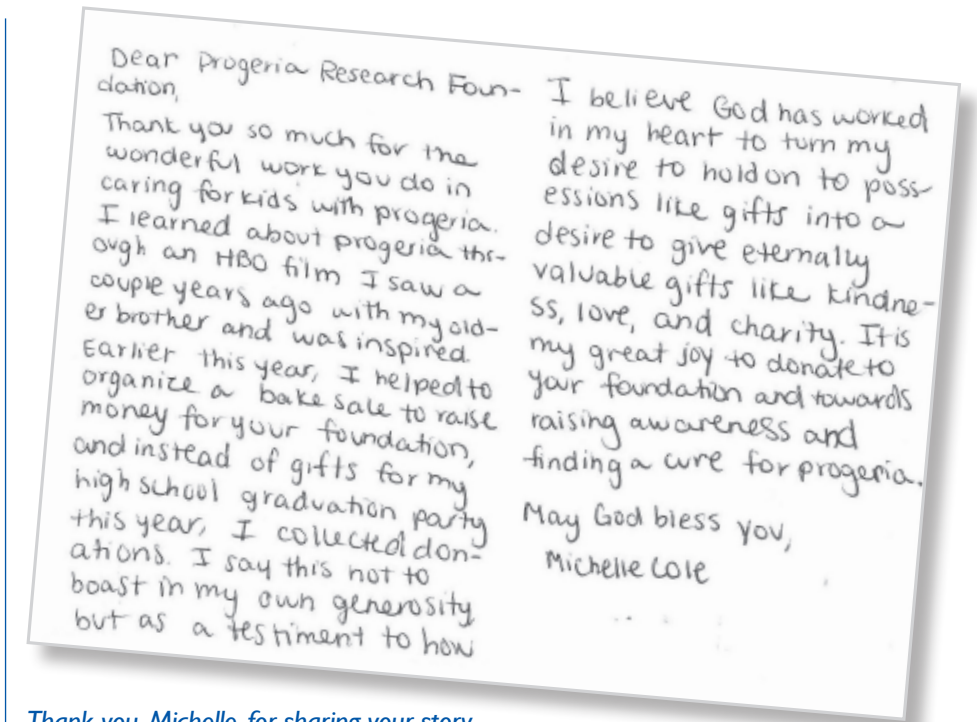 Dear Progeria Research Foun-
dation,
Thank you so much for the
wonderful work you do in
caring for kids with progeria.
I learned about progeria thr-
ough an HBO film I saw a
couple years ago with my old-
er brother and was inspired.
Earlier this year, I helped to
organize a bake sale to raise
money for your foundation,
and instead of gifts for my
high school graduation party
this year, I collected don-
ations. I say this not to
boast in my own generosity
but as a testiment to how
I believe God has worked
in my heart to turn my
desire to hold on to poss-
essions like gifts into a
desire to give eternally
valuable gifts like kindne-
ss, love, and charity. It is
my great joy to donate to
your foundation and towards
raising awareness and
finding a cure for progeria.
May God bless you,
Michelle Cole
Thank you, Michelle, for sharing your story